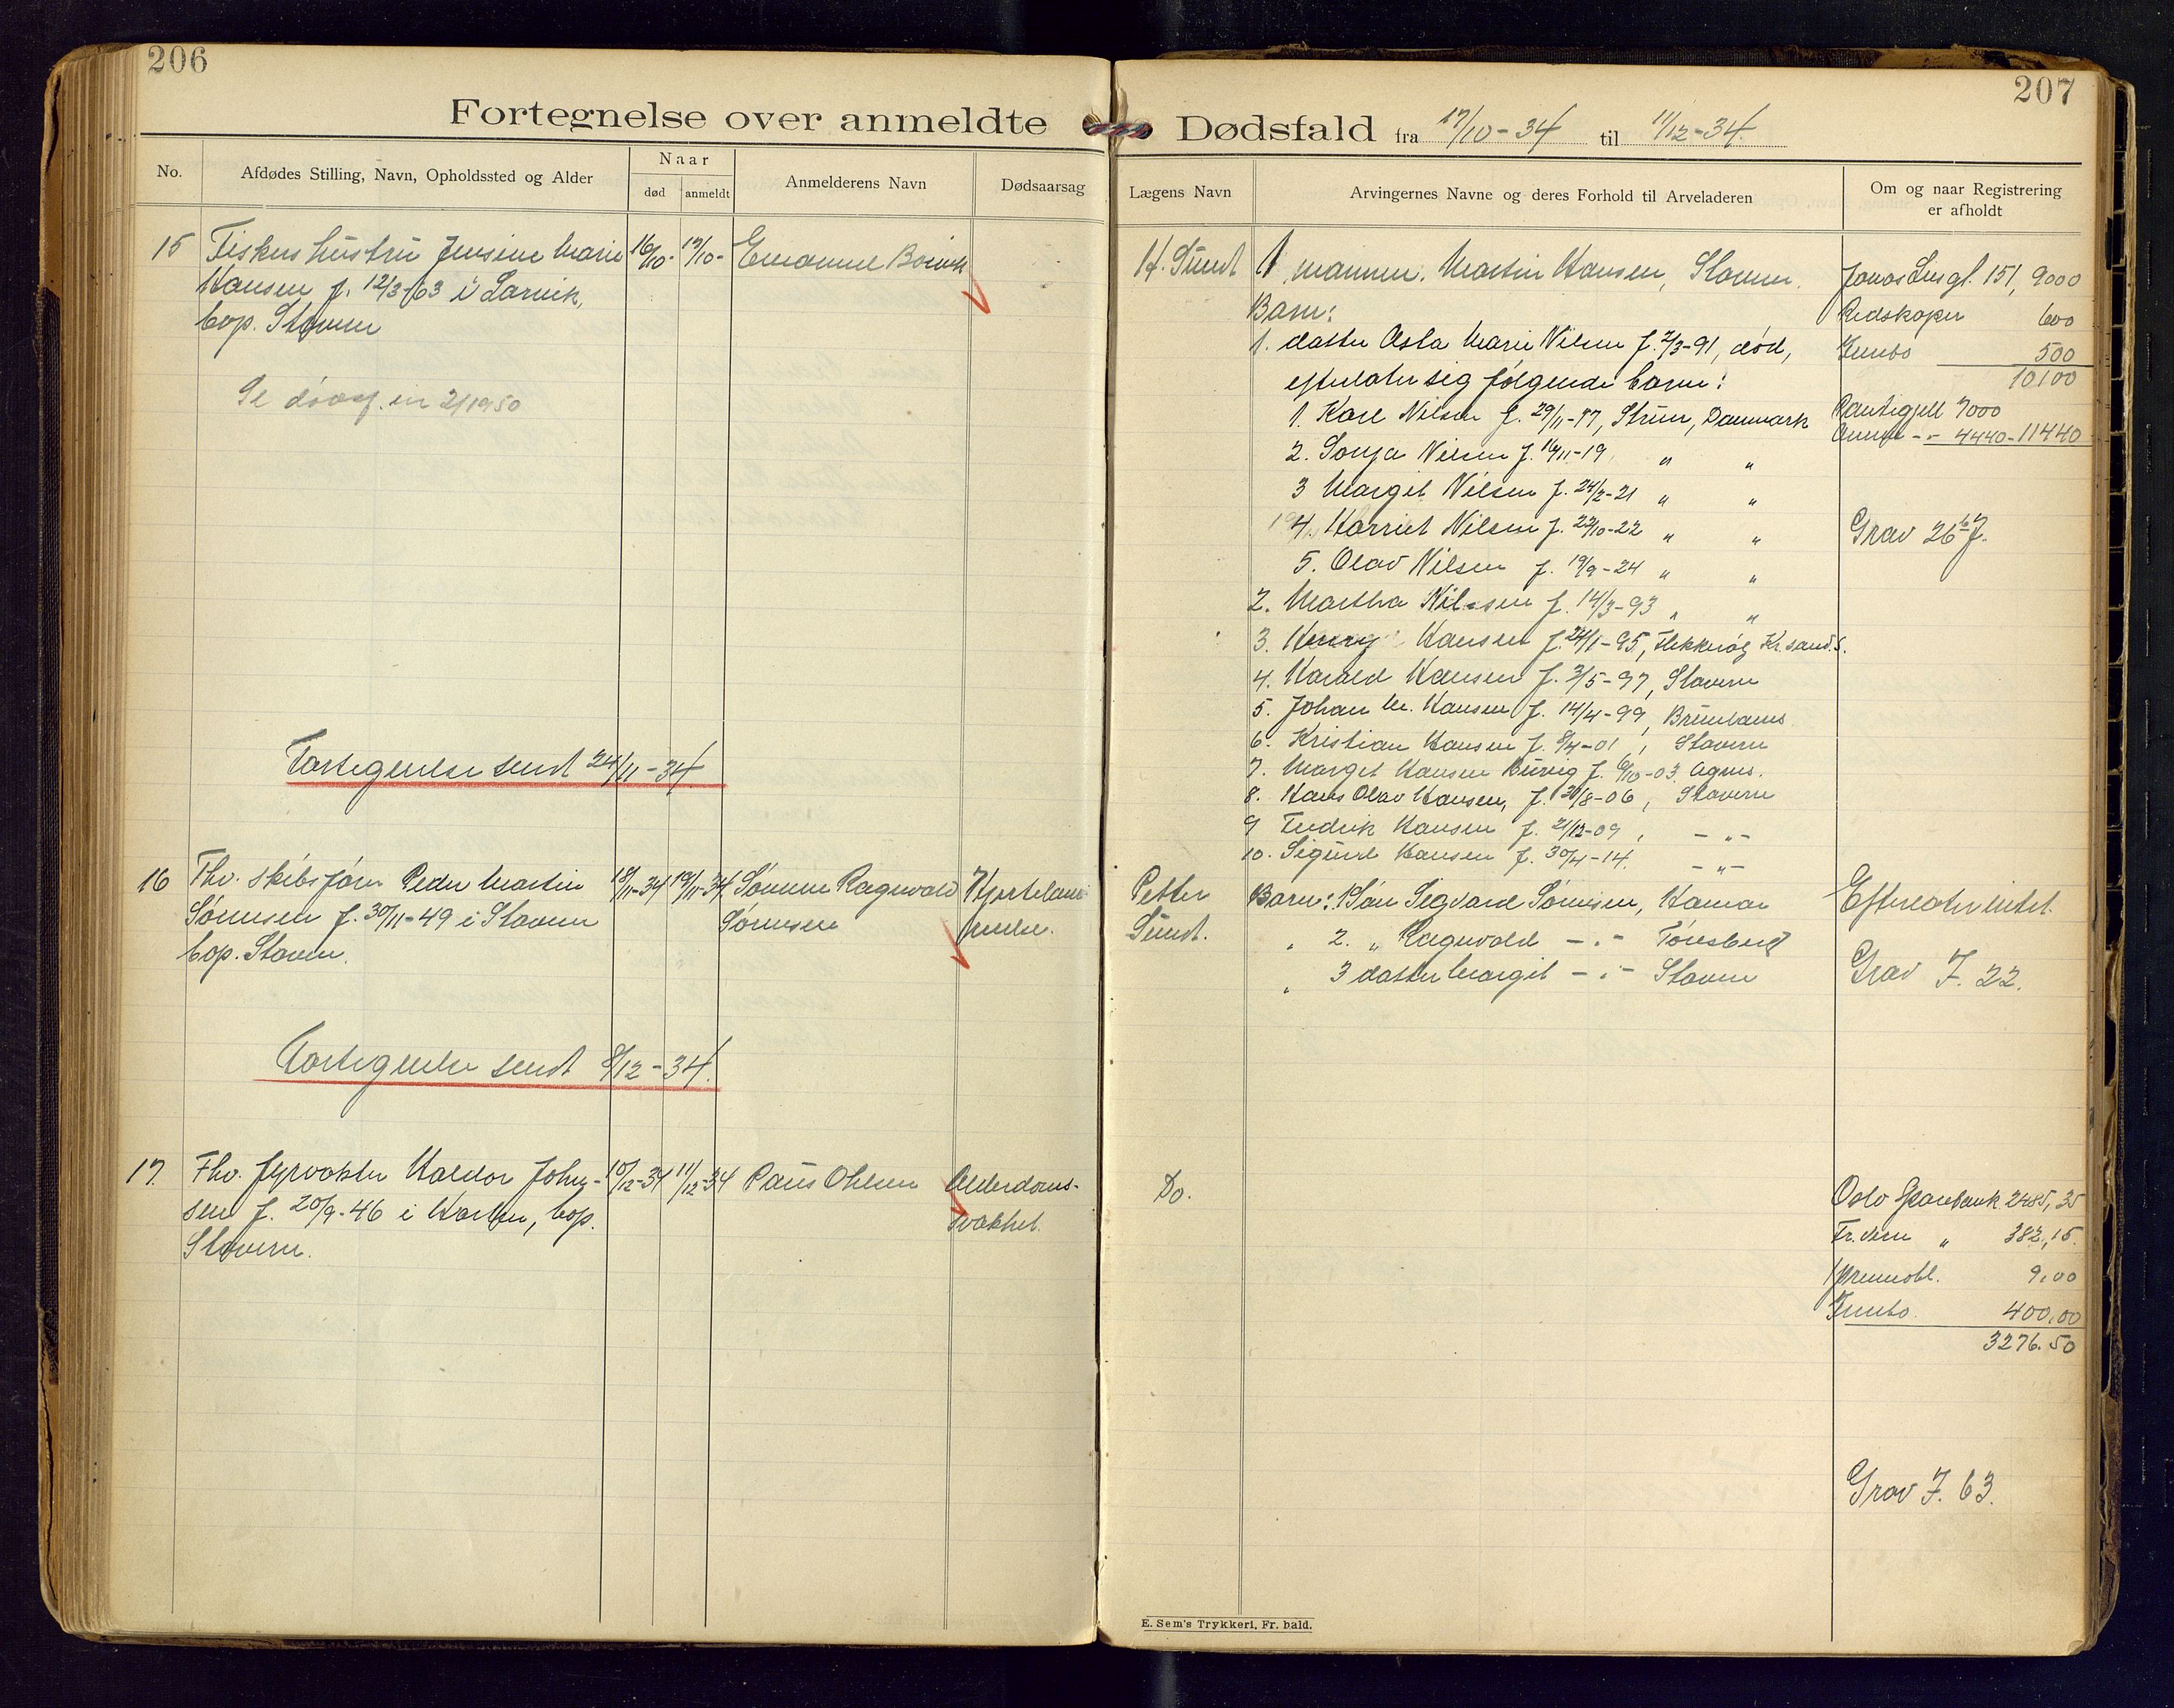 206
Fortegnelse over anmeldte
No.
Afdødes Stilling, Navn, Opholdssted og Alder
Naar
død
anmeldt
Anmelderens Navn
Dødsaarsag
15
Fiskers hustru Jensine Marie
Hansen f. 12/3-63 i Larvik,
bop. Stavern
16/10-
17/10-
Emanuel
Se 2/1950
Fortegnelse sendt 24/11-34.
16
Fhv. skibsfører Peder Martin
Sørensen f. 30/11-49 i Stavern
bop. Stavern.
18/11-34
19/11-34
Sønnen Ragnvald
Sørensen
Hjertelam-
melse.
Fortegnelse sendt 8/12-34.
17.
Fhv. fyrvokter Haldor Johan-
sen f. 20/9-46 i Horten, bop.
Stavern.
10/12-34
11/12-34
Paus Ohlsen
Alderdoms-
svakhet.
207
Dødsfald fra 17/10-34 til 11/12-34.
Lægens Navn
Arvingernes Navne og deres Forhold til Arveladeren
Om og naar Registrering
er afholdt
H. Sundt
1 mannen. Martin Hansen, Stavern.
Barn:
1. datter Asta Marie Nilsen f. 2/3-91, død,
efterlater sig følgende barn:
1. Karl Nilsen f. 29/11-17, Struer, Danmark
2. Sonja Nilsen f. 16/11-19 " "
3 Margit Nilsen f. 24/2-21 " "
4. Harriet Nilsen f. 22/10-22 " "
5. Olav Nilsen f. 19/9-24 " "
2. Martha Nilssen f. 14/3-93 " "
3. Henry Hansen f. 24/1-95, Flekkerøy Kr.sand S.
4. Harald Hansen f. 3/5-97, Stavern
5. Johan M. Hansen f. 14/4-99, Brunlanes
6. Kristian Hansen f. 8/4-01, Stavern
7. Margit Hansen Burvig f. 6/10-03. Agnes.
8. Hans Olav Hansen, f. 20/8-06, Stavern
9 Fredrik Hansen f. 21/12-09, - " -
10. Sigurd Hansen f. 30/4-14. - " -
151, 9000
Redskaper 600
Innbo 500
10100
Pantegjell 7000
Annen - " - 4440 - 11440
Grav 26 b F.
Petter
Sundt.
Barn: 1 Søn Sigvard Sørensen, Hamar
" 2. " Ragnvald - " - Tønsberg
" 3 datter Margit - " - Stavern
Efterlater intet.
Grav F. 22.
Do.
Oslo Sparebank 2485,35
Fr.vern " 382,15.
1 premieobl. 9,00
Innbo. 400,00
3276.50
Grav F. 63.
E. Sem's Trykkeri, Fr. hald.